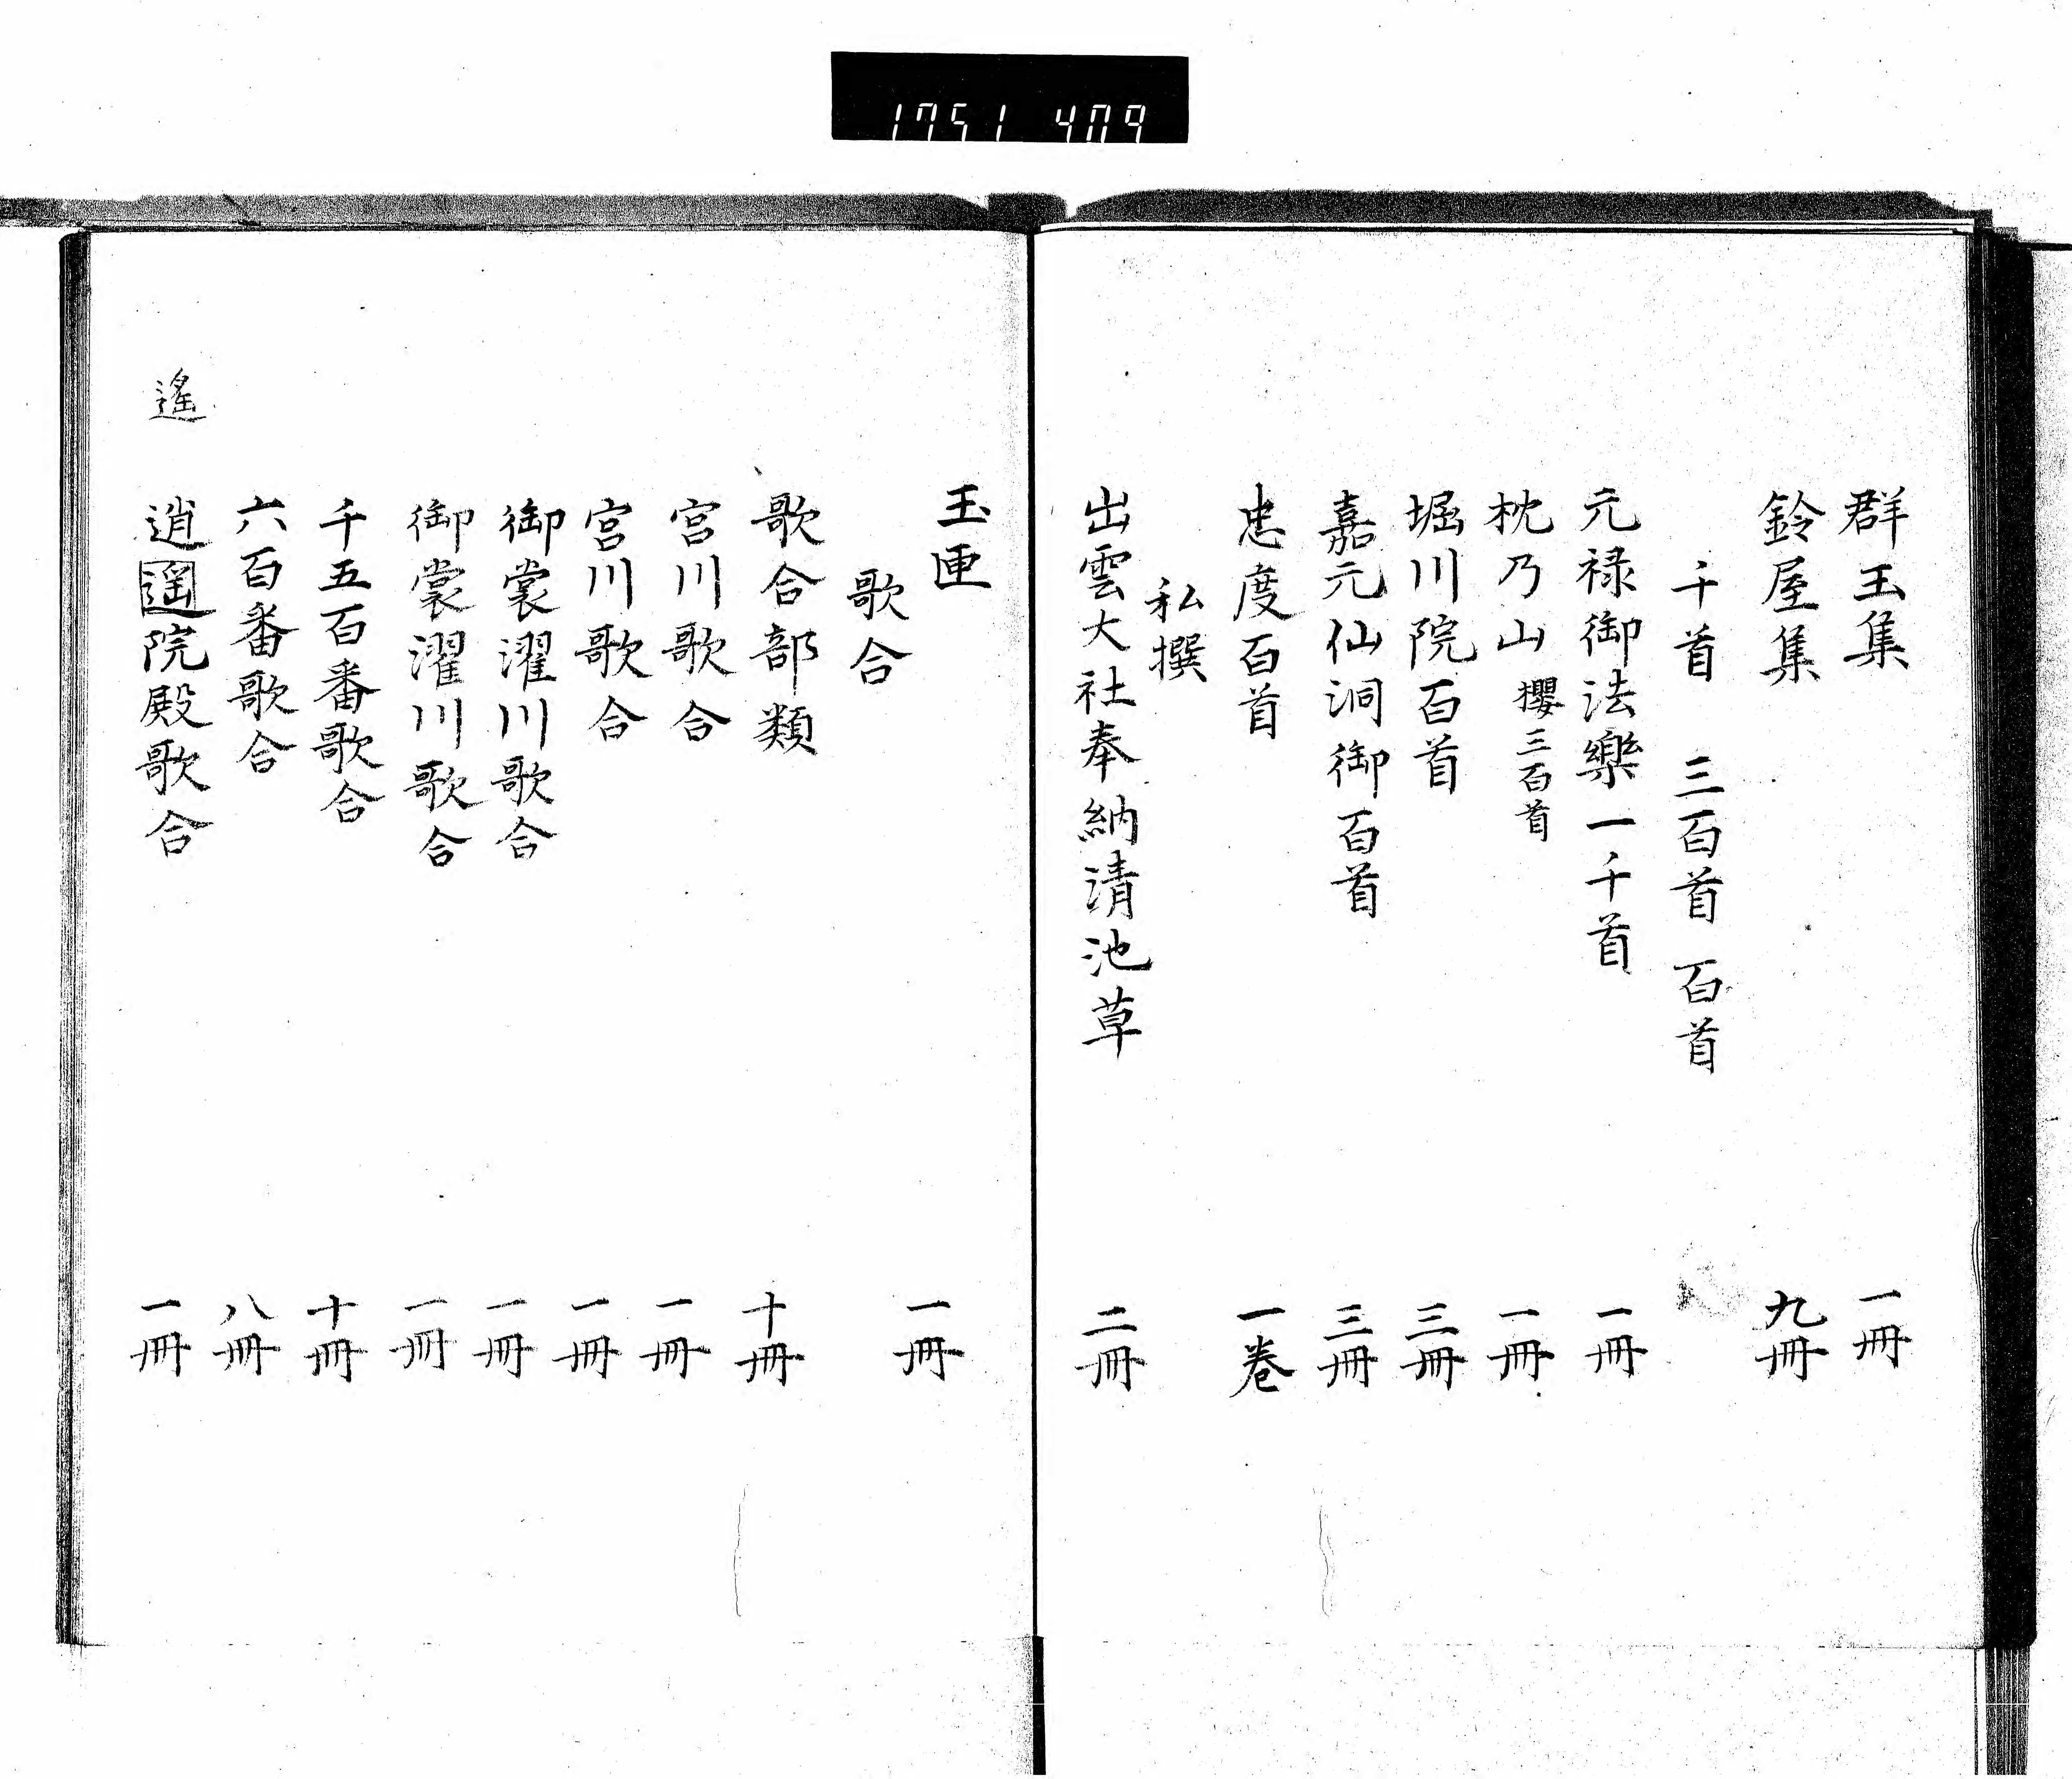 1751 409
群玉集 一冊
鈴屋集 九冊
千首 三百首 百首
元禄御法樂一千首 一冊
枕乃山 櫻三百首 一冊
堀川院百首 三冊
嘉元仙洞御百首 三冊
忠度百首 一巻
私撰
出雲大社奉納清池草 二冊
玉匣 一冊
歌合
歌合部類 十冊
宮川歌合 一冊
宮川歌合 一冊
御裳濯川歌合 一冊
御裳濯川歌合 一冊
千五百番歌合 十冊
六百番歌合 八冊
遙
逍遥院殿歌合 一冊